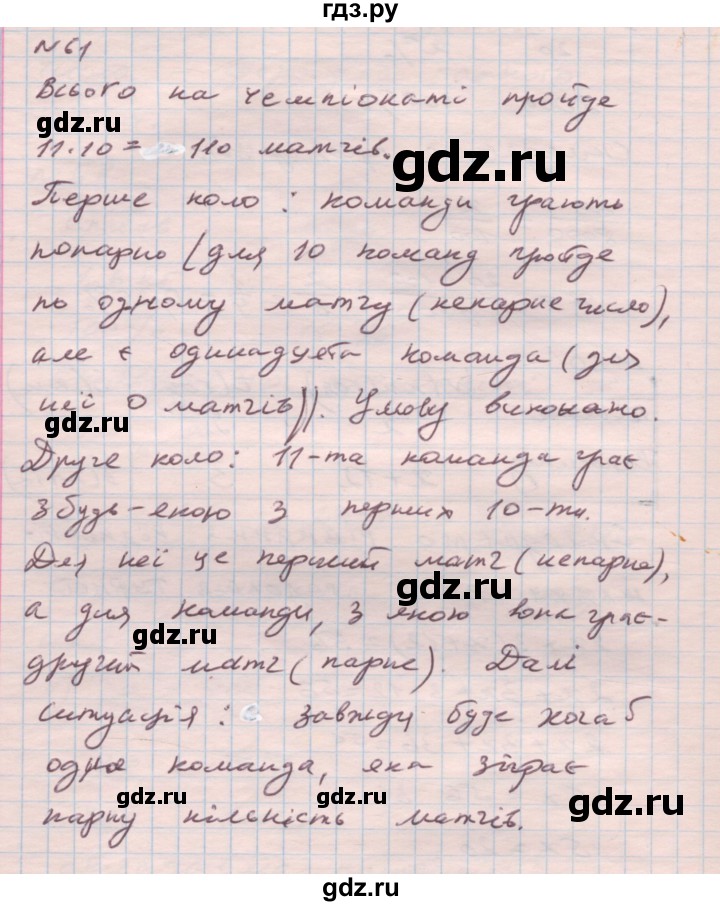 гдз.ру
N61
Всього на чемпіонаті пройде
gdz.ru
11·10 = 110 матчів.
gdz.ru
Перше коло: команди грають
попарно (для 10 команд пройде
по одному матчу (непарне число),
але є одинадцята команда (для
неї 0 матчів)). Умову виконано.
gdz.ru
gdz.ru
Друге коло: 11-та команда грає
з будь-якою з перших 10-ти.
Для неї це перший матч (непарне),
gdz.ru
а для команди, з якою вона грає-
gdz.ru
другий матч (парне). Далі
ситуація: завжди буде хоча б
одна команда, яка зіграє
gdz.ru
gdz.ru
парну кількість матчів.
gdz.ru
gdz.ru